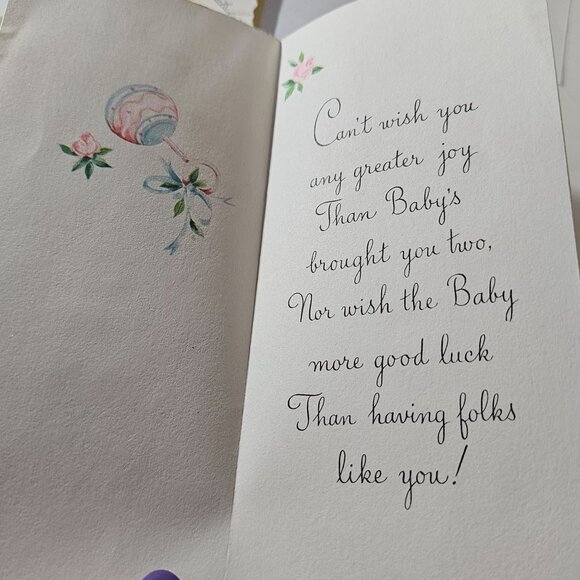 Can't wish you
any greater joy
Than Baby's
brought you two,
Nor wish the Baby
more good luck
Than having folks
like you!